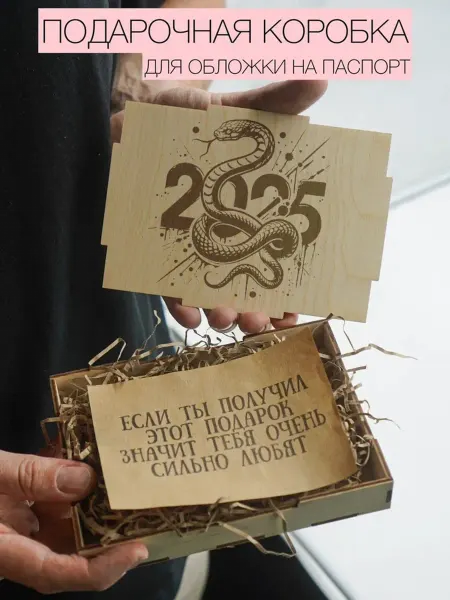 ПОДАРОЧНАЯ КОРОБКА
ДЛЯ ОБЛОЖКИ НА ПАСПОРТ
2025
ЕСЛИ ТЫ ПОЛУЧИЛ
ЭТОТ ПОДАРОК
ЗНАЧИТ ТЕБЯ ОЧЕНЬ
СИЛЬНО ЛЮБЯТ